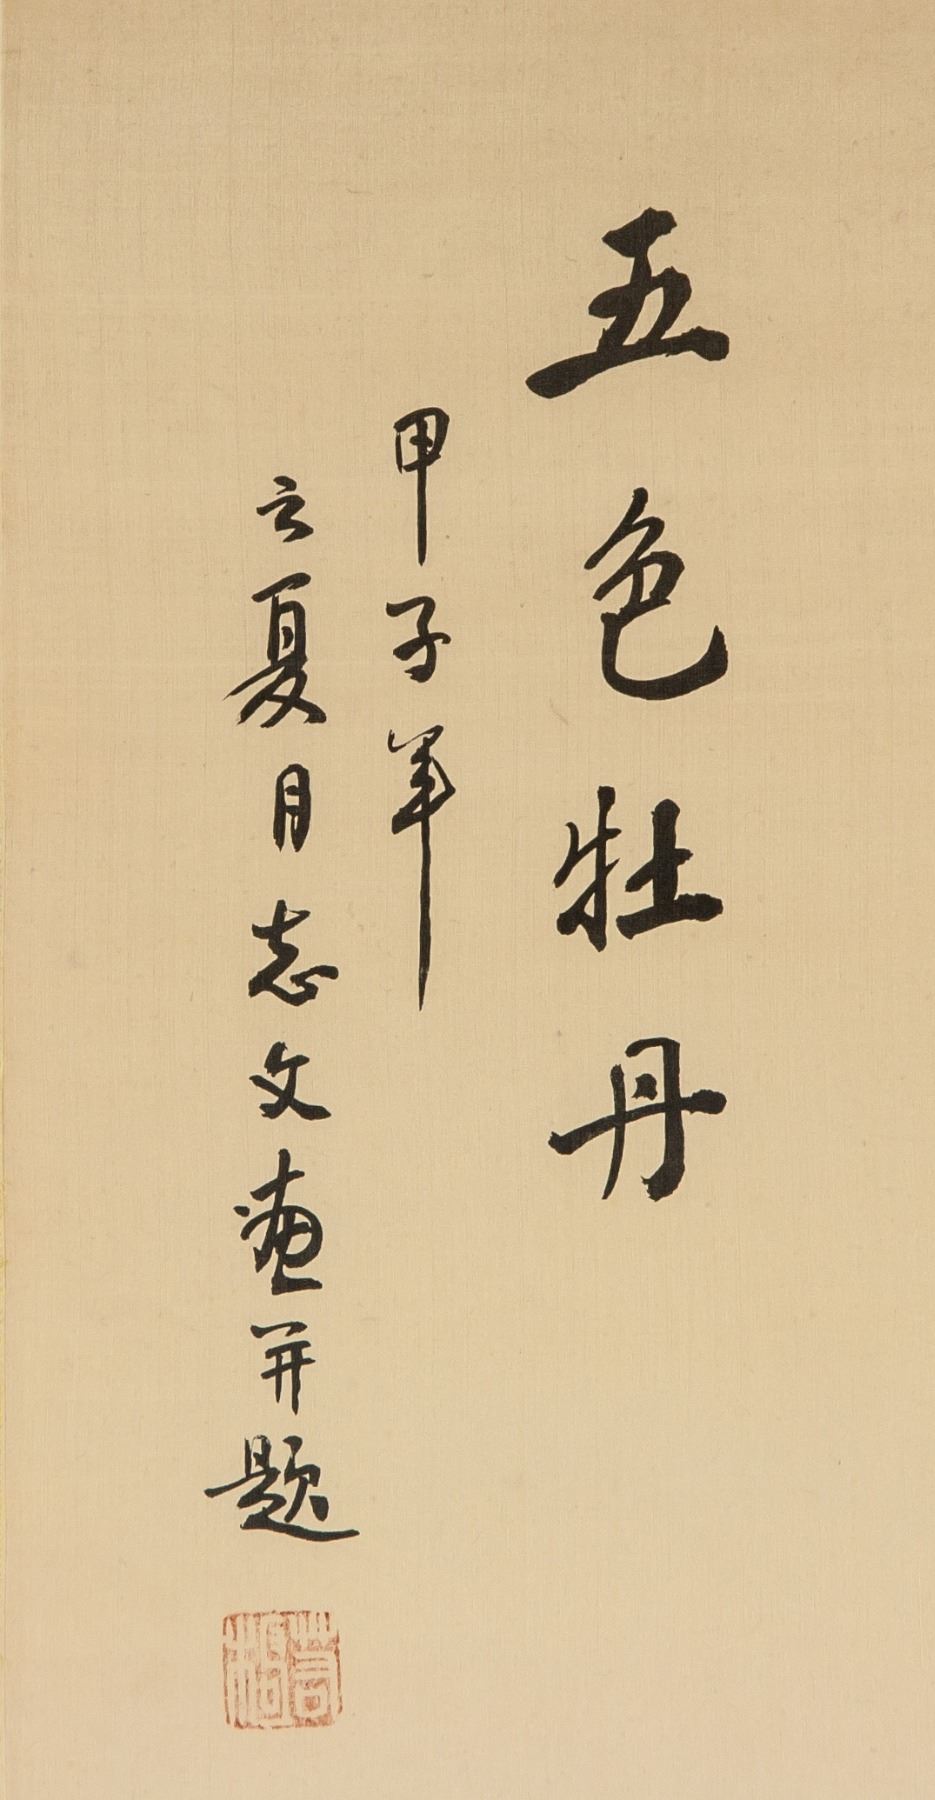 五色牡丹
甲子年
之夏月志文画并题